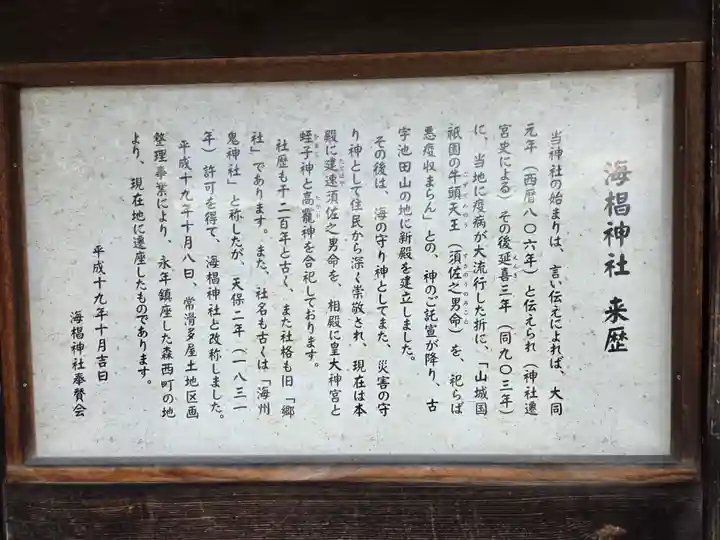 海椙神社 来歴
当神社の始まりは、言い伝えによれば、大同
元年（西暦八〇六年）と伝えられ（神社遷
宮史による）その後延喜三年（同九〇三年）
に、当地に疫病が大流行した折に、「山城国
祇園の牛頭天王（須佐之男命）を、祀らば
悪疫収まらん」との、神のご託宣が降り、古
字池田山の地に新殿を建立しました。
その後は、海の守り神としてまた、災害の守
り神として住民から深く崇敬され、現在は本
殿に建速須佐之男命を、相殿に皇大神宮と
蛭子神と高龗神を合祀しております。
社歴も千二百年と古く、また社格も旧「郷
社」であります。また、社名も古くは「海州
鬼神社」と称したが、天保二年（一八三一
年）許可を得て、海椙神社と改称しました。
平成十九年十月八日、常滑多屋土地区画
整理事業により、永年鎮座した森西町の地
より、現在地に遷座したものであります。
平成十九年十月吉日
海椙神社奉賛会